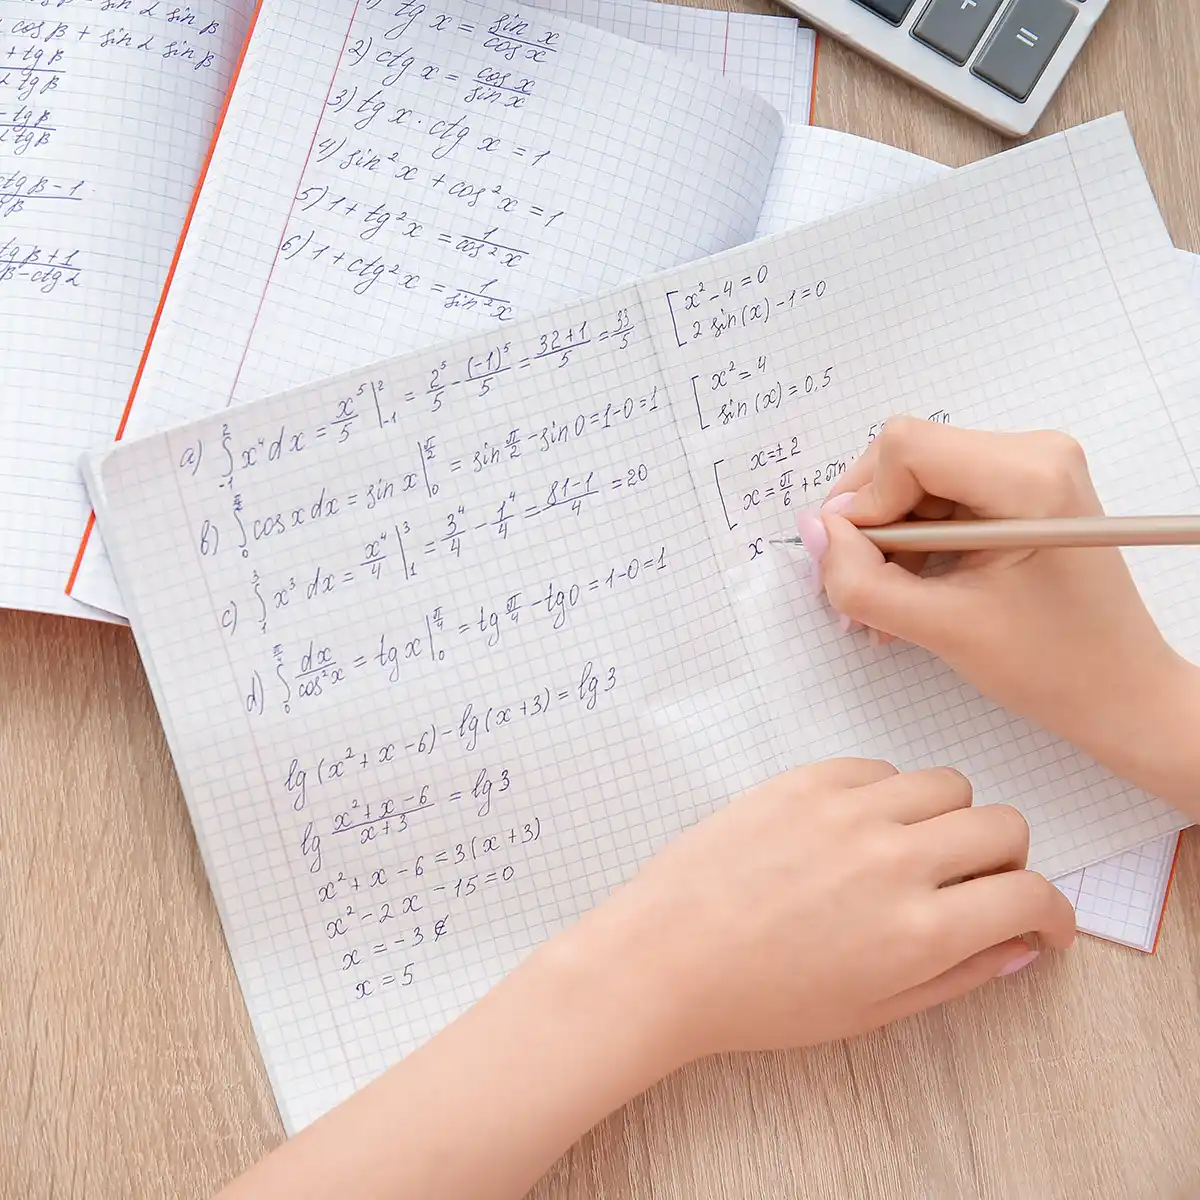 cos β + sin α sin β
+ tg β
α tg β
- tg β
α tg β
ctg β - 1
g β
tg β + 1
β - ctg α
1) tg x = sin x / cos x
2) ctg x = cos x / sin x
3) tg x · ctg x = 1
4) sin² x + cos² x = 1
5) 1 + tg² x = 1 / cos² x
6) 1 + ctg² x = 1 / sin² x
a) ∫₋₁² x⁴ dx = x⁵/5 |₋₁² = 2⁵/5 - (-1)⁵/5 = (32+1)/5 = 33/5
b) ∫₀^(π/2) cos x dx = sin x |₀^(π/2) = sin π/2 - sin 0 = 1-0 = 1
c) ∫₁³ x³ dx = x⁴/4 |₁³ = 3⁴/4 - 1⁴/4 = (81-1)/4 = 20
d) ∫₀^(π/4) dx / cos² x = tg x |₀^(π/4) = tg π/4 - tg 0 = 1-0 = 1
lg (x² + x - 6) - lg (x + 3) = lg 3
lg (x² + x - 6) / (x + 3) = lg 3
x² + x - 6 = 3 (x + 3)
x² - 2x - 15 = 0
x = -3 ∉
x = 5
[ x² - 4 = 0
2 sin (x) - 1 = 0
[ x² = 4
sin (x) = 0,5
[ x = ± 2
x = π/6 + 2πn
x
=
+